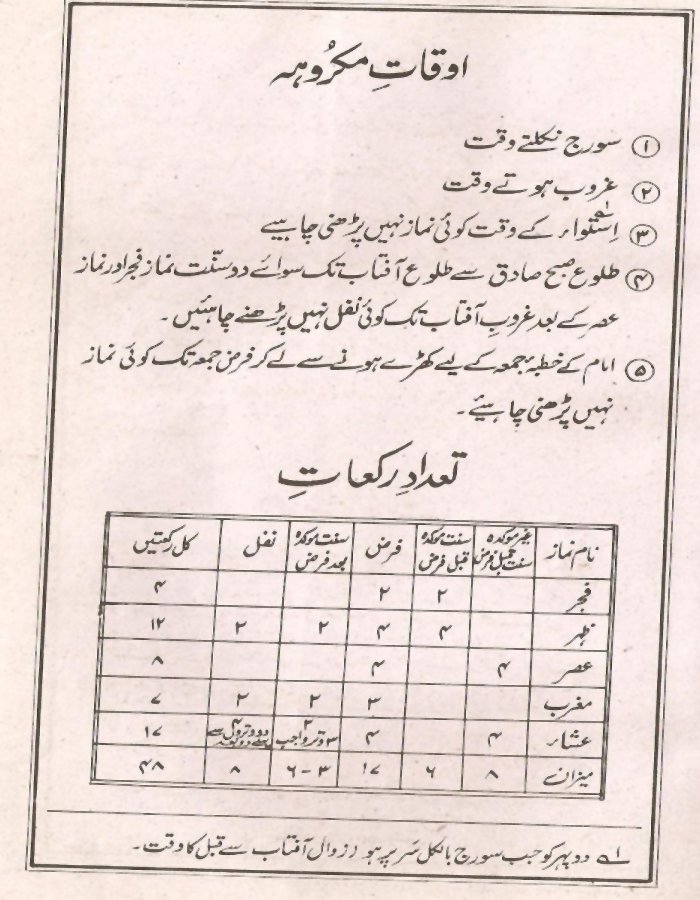 اوقاتِ مکرُوہہ
۱ سورج نکلتے وقت
۲ غروب ہوتے وقت
۳ اِستواء ؎۱ کے وقت کوئی نماز نہیں پڑھنی چاہیے
۴ طلوع صبح صادق سے طلوع آفتاب تک سوائے دو سنّت نماز فجر اور نماز
عصر کے بعد غروبِ آفتاب تک کوئی نفل نہیں پڑھنے چاہئیں۔
۵ امام کے خطبۂ جمعہ کے لیے کھڑے ہونے سے لے کر فرض جمعہ تک کوئی نماز
نہیں پڑھنی چاہیئے۔
تعدادِ رکعاتِ
نام نماز غیر موکدہ سنت قبل فرض سنت موکدہ قبل فرض فرض سنت موکدہ بعد فرض نفل کل رکعتیں
فجر ۲ ۲ ۴
ظہر ۴ ۴ ۲ ۲ ۱۲
عصر ۴ ۴ ۸
مغرب ۳ ۲ ۲ ۷
عشاء ۴ ۴ ۲ ۳ وتر واجب ۴ دو وتروں سے پہلے دو بعد ۱۷
میزان ۸ ۶ ۱۷ ۶-۳ ۸ ۴۸
؎۱ دوپہر کو جب سورج بالکل سَر پر ہو زوال آفتاب سے قبل کا وقت۔